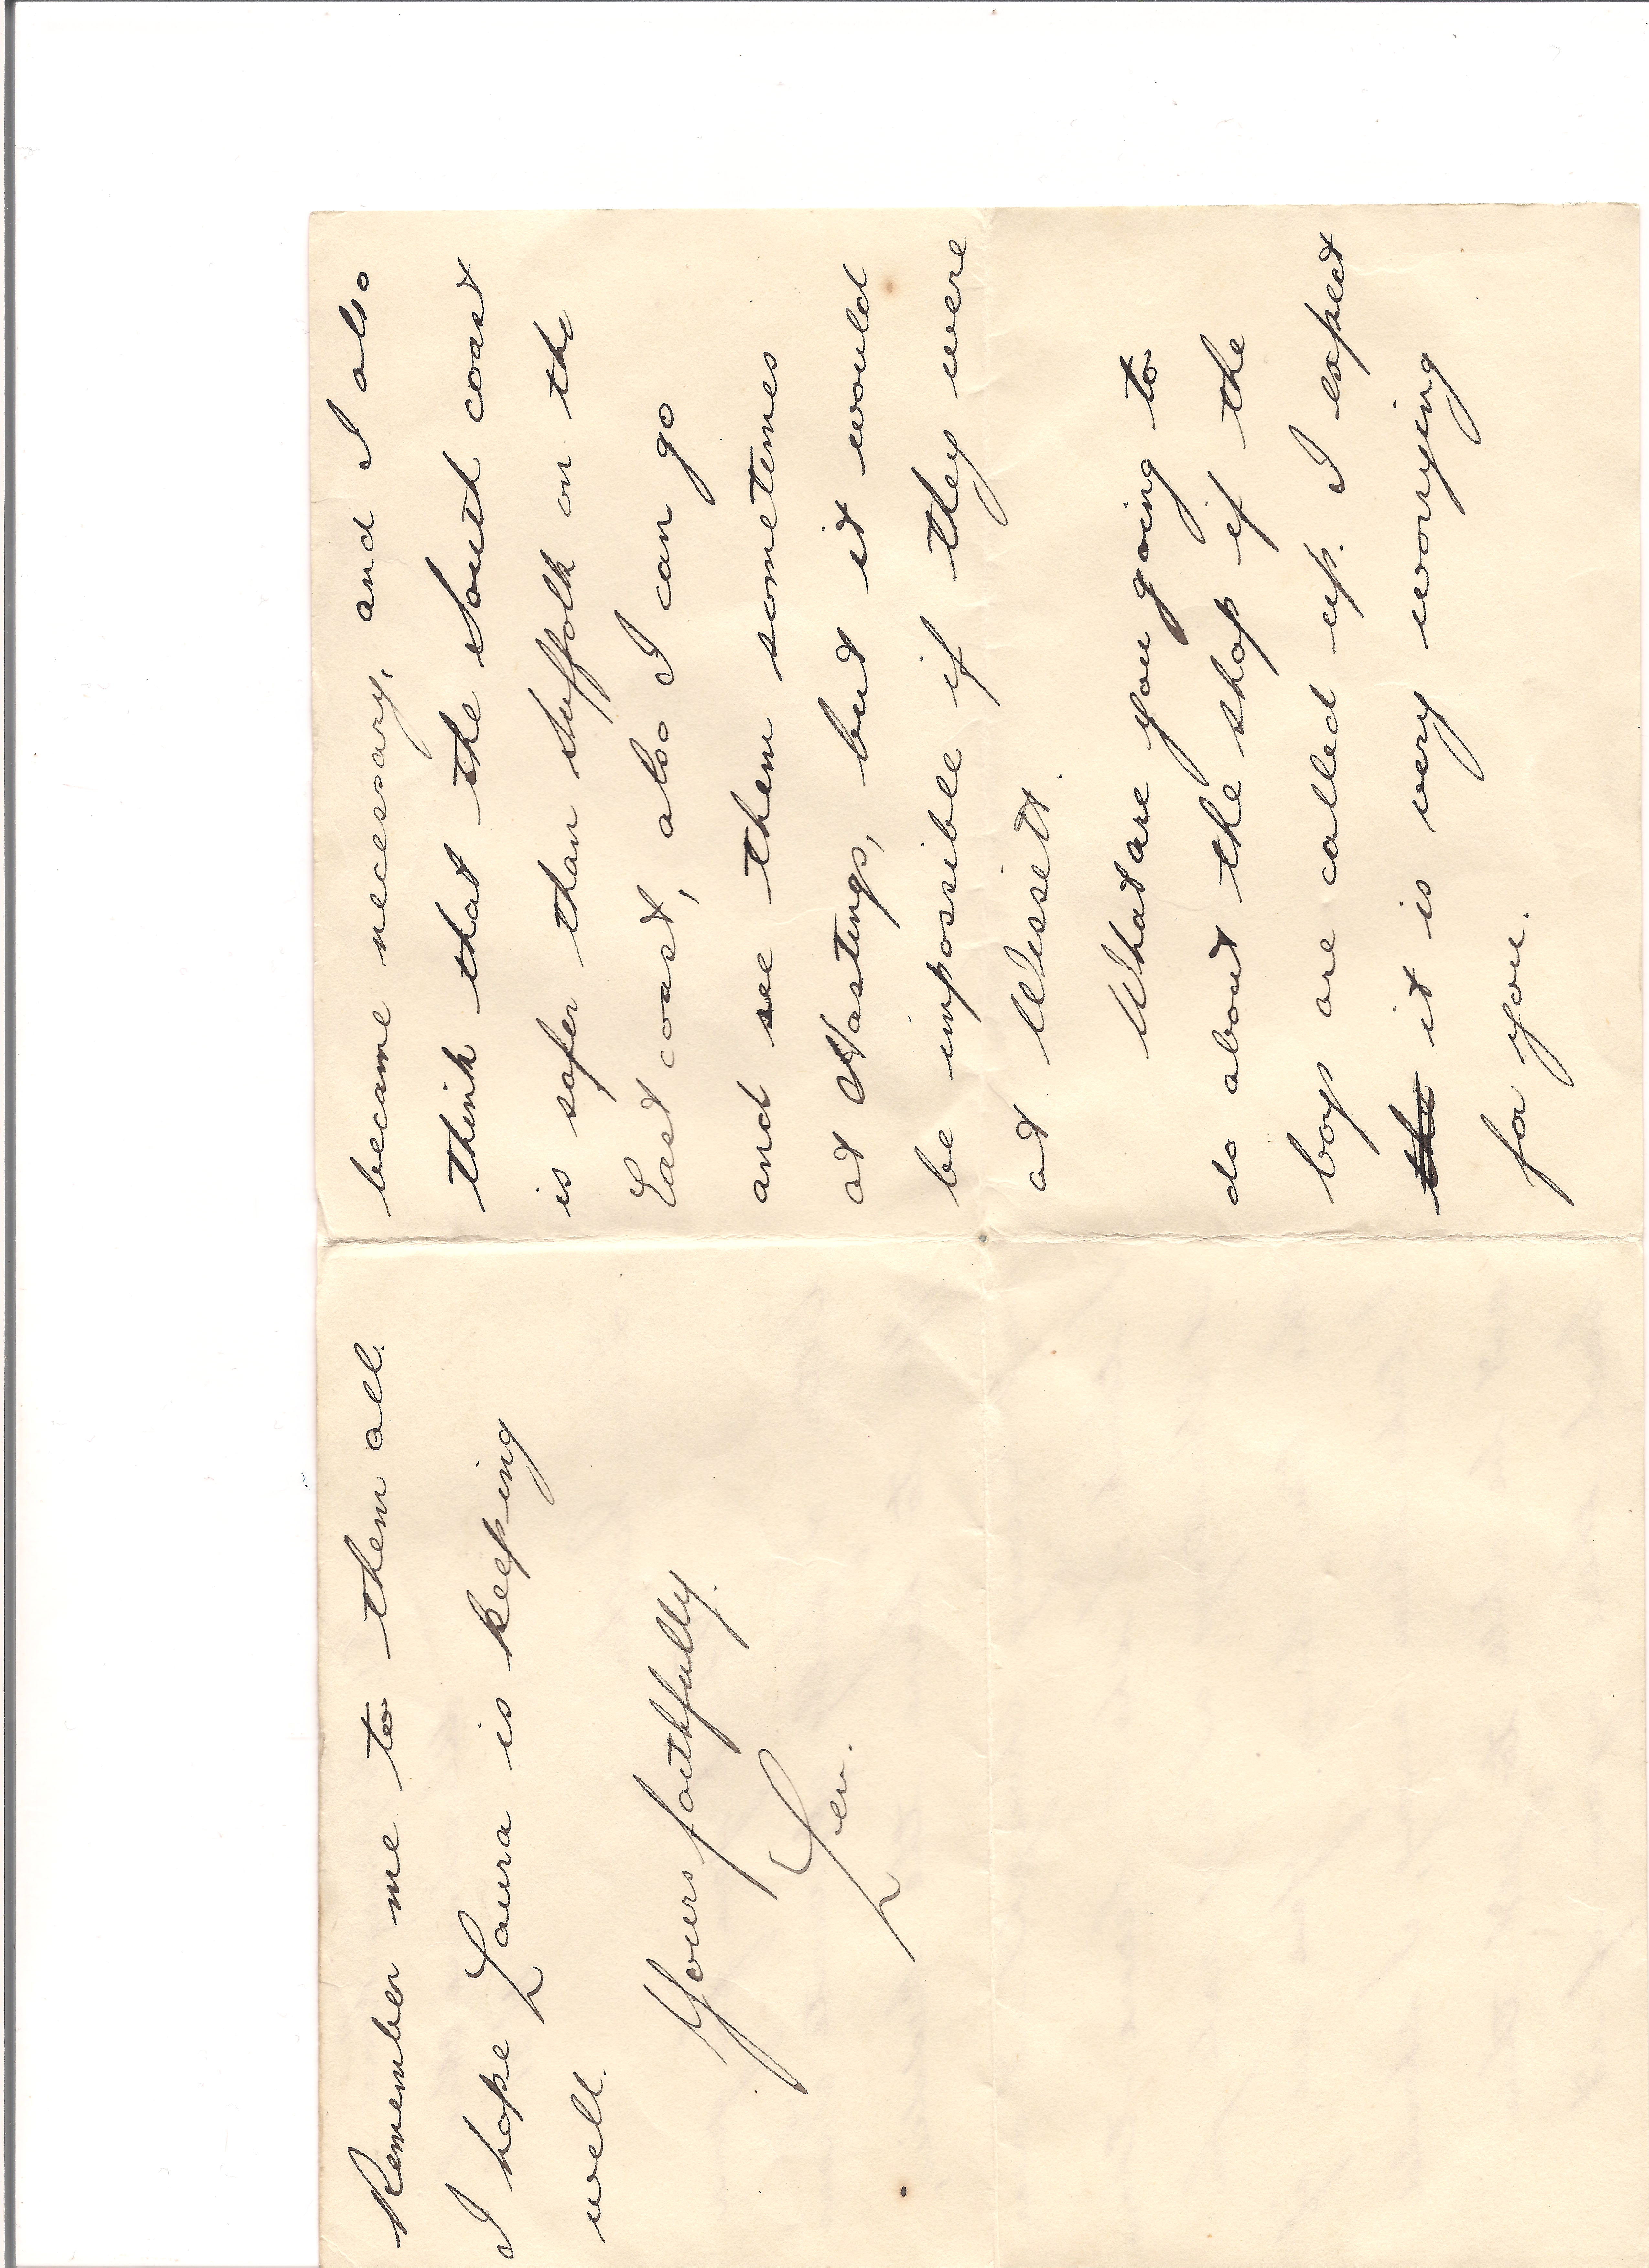 became necessary, and I also
think that the South coast
is safer than Suffolk on the
East coast, also I can go
and see them sometimes
at Hastings, but it would
be impossible if they were
at Wissett.
What are you going to
do about the shop if the
boys are called up. I expect
the it is very worrying
for you.
Remember me to them all.
I hope Laura is keeping
well.
Yours faithfully.
Len.